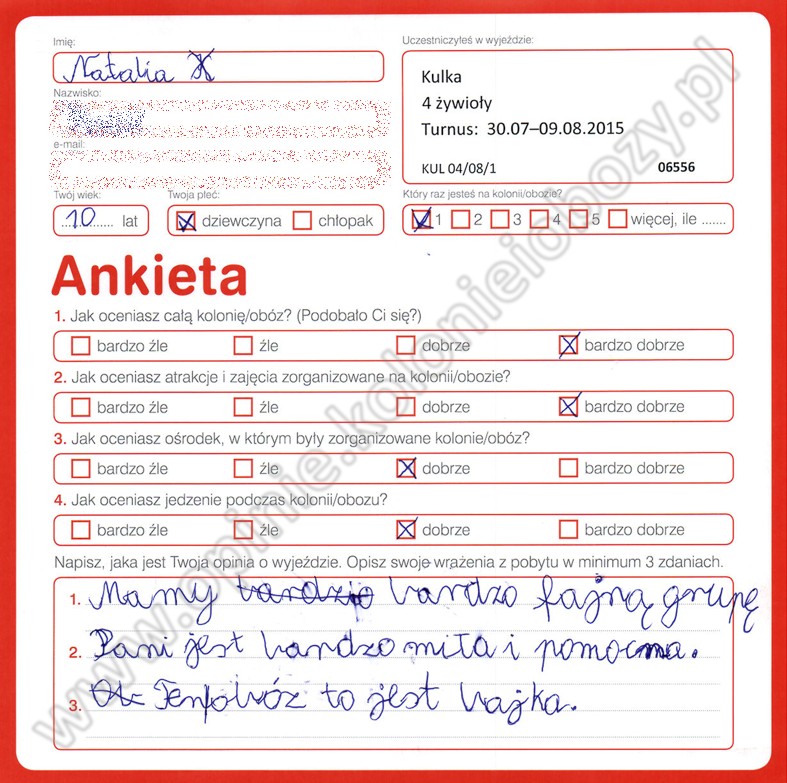 Imię:
Natalia
Nazwisko:
e-mail:
Uczestniczyłeś w wyjeździe:
Kulka
4 żywioły
Turnus: 30.07–09.08.2015
KUL 04/08/1 06556
Twój wiek:
10 lat
Twoja płeć:
dziewczyna chłopak
Który raz jesteś na kolonii/obozie?
1 2 3 4 5 więcej, ile .......
Ankieta
1. Jak oceniasz całą kolonię/obóz? (Podobało Ci się?)
bardzo źle źle dobrze bardzo dobrze
2. Jak oceniasz atrakcje i zajęcia zorganizowane na kolonii/obozie?
bardzo źle źle dobrze bardzo dobrze
3. Jak oceniasz ośrodek, w którym były zorganizowane kolonie/obóz?
bardzo źle źle dobrze bardzo dobrze
4. Jak oceniasz jedzenie podczas kolonii/obozu?
bardzo źle źle dobrze bardzo dobrze
Napisz, jaka jest Twoja opinia o wyjeździe. Opisz swoje wrażenia z pobytu w minimum 3 zdaniach.
1. Mamy bardzo fajną grupę
2. Pani jest bardzo miła i pomocna.
3. Ten obóz to jest bajka.
www.opinie.kolonieiobozy.pl